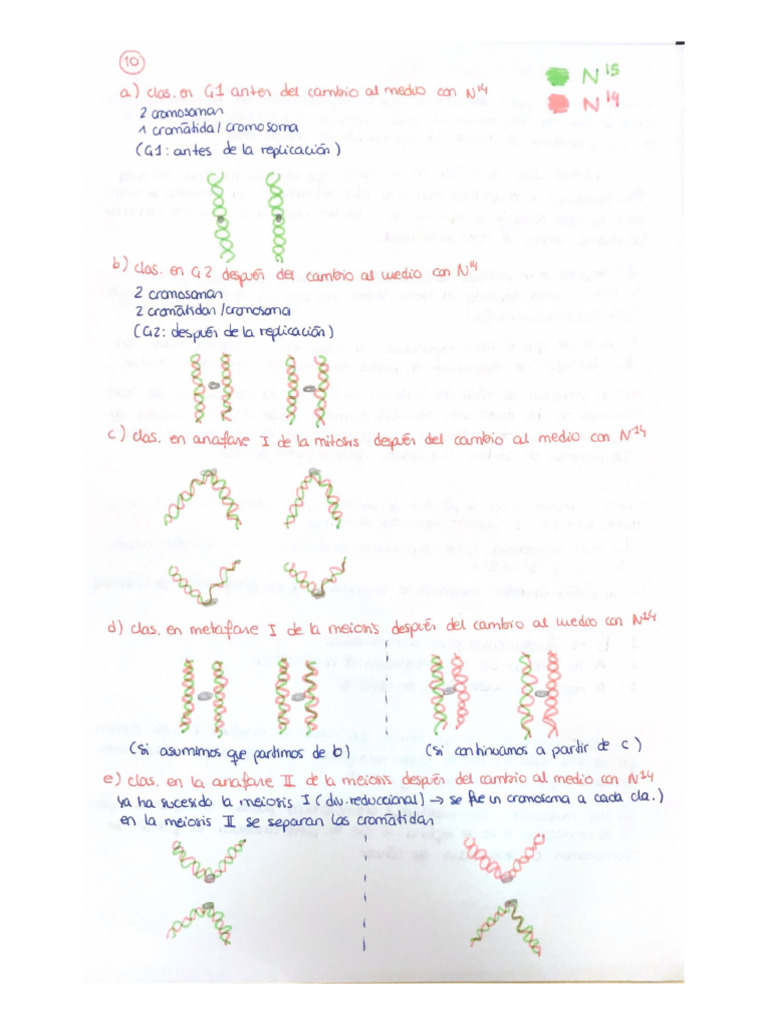 10
N15
N14
a) clas. en G1 antes del cambio al medio con N14
2 cromosomas
1 cromátida/cromosoma
(G1: antes de la replicación)
b) clas. en G2 después del cambio al medio con N14
2 cromosomas
2 cromátidas/cromosoma
(G2: después de la replicación)
c) clas. en anafase I de la mitosis después del cambio al medio con N14
d) clas. en metafase I de la meiosis después del cambio al medio con N14
(si asumimos que partimos de b)
(si continuamos a partir de c)
e) clas. en la anafase II de la meiosis después del cambio al medio con N14
ya ha sucesido la meiosis I (div. reduccional) → se fue un cromosoma a cada cla.)
en la meiosis II se separan las cromátidas